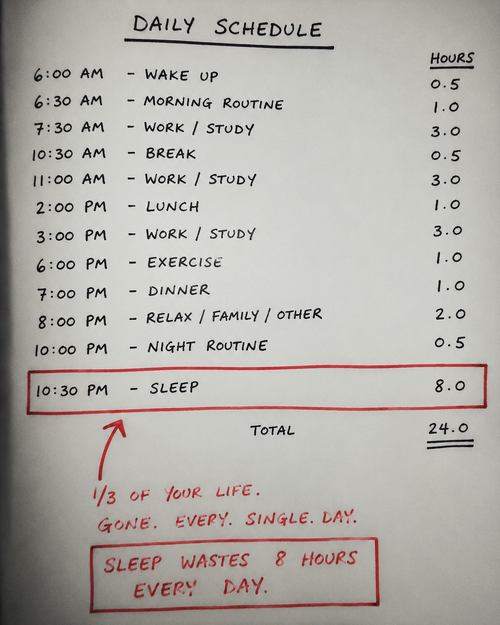 DAILY SCHEDULE
HOURS
6:00 AM - WAKE UP 0.5
6:30 AM - MORNING ROUTINE 1.0
7:30 AM - WORK / STUDY 3.0
10:30 AM - BREAK 0.5
11:00 AM - WORK / STUDY 3.0
2:00 PM - LUNCH 1.0
3:00 PM - WORK / STUDY 3.0
6:00 PM - EXERCISE 1.0
7:00 PM - DINNER 1.0
8:00 PM - RELAX / FAMILY / OTHER 2.0
10:00 PM - NIGHT ROUTINE 0.5
10:30 PM - SLEEP 8.0
TOTAL 24.0
1/3 OF YOUR LIFE.
GONE. EVERY. SINGLE. DAY.
SLEEP WASTES 8 HOURS
EVERY DAY.